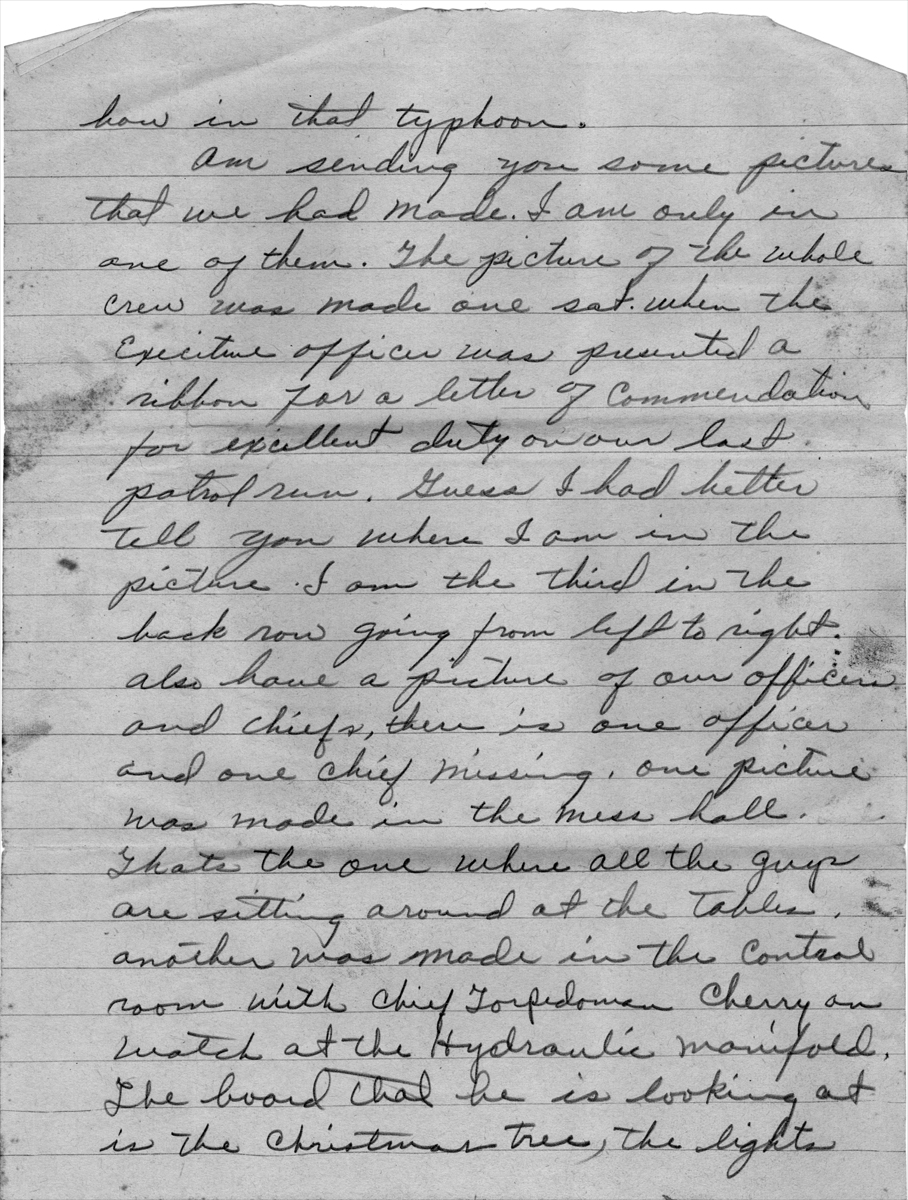 how in that typhoon.
Am sending you some pictures
that we had made. I am only in
one of them. The picture of the whole
crew was made one sat. when the
Execitive officer was presented a
ribbon for a letter of Commendation
for excellent duty on our last
patrol run. Guess I had better
tell you where I am in the
picture. I am the third in the
back row going from left to right.
also have a picture of our officers
and chiefs, there is one officer
and one chief missing. one picture
was made in the mess hall.
Thats the one where all the guys
are sitting around at the tables.
another was made in the Control
room with Chief Torpedoman Cherry on
watch at the Hydraulic manifold.
The board that he is looking at
is the Christmas tree, the lights